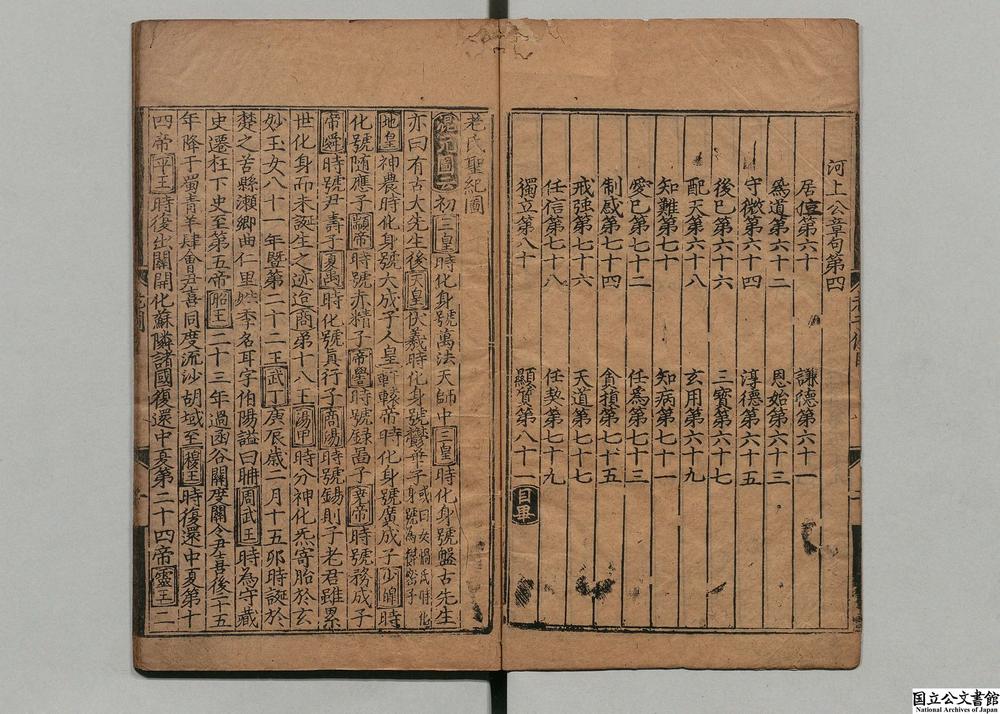 河上公章句第四
居位第六十 謙德第六十一
為道第六十二 恩始第六十三
守微第六十四 淳德第六十五
後已第六十六 三寶第六十七
配天第六十八 玄用第六十九
知難第七十 知病第七十一
愛已第七十二 任為第七十三
制惑第七十四 貪損第七十五
戒强第七十六 天道第七十七
任信第七十八 任契第七十九
獨立第八十 顯質第八十一 目畢
老氏聖紀圖
圖云初三皇時化身號萬法天師中三皇時化身號盤古先生
亦曰有古大先生後天皇伏羲時化身號欝華子或曰女媧氏時化身號
地皇神農時化身號大成子人皇軒轅帝時化身號廣成子少皥時
化號随應子顓帝時號赤精子帝嚳時號録啚子帝時號務成子
帝舜時號尹壽子夏禹時化號真行子商湯時號錫則子老君雖累
世化身而未誕生之迹迨商第十八王湯甲時分神化炁寄胎於玄
妙玉女八十一年暨第二十二王武丁庚辰歲二月十五卯時誕於
楚之苦縣瀬鄉曲仁里姓李名耳字伯陽謚曰聃周武王時為守藏
史遷柱下史至第五帝昭王二十三年過函谷關度關令尹喜後二十五
年降于蜀青羊肆會尹喜同度流沙胡域至穆王時復還中夏第十
四帝平王時復出關開化蘇隣諸國復還中夏第二十四帝靈王二
国立公文書館
National Archives of Japan